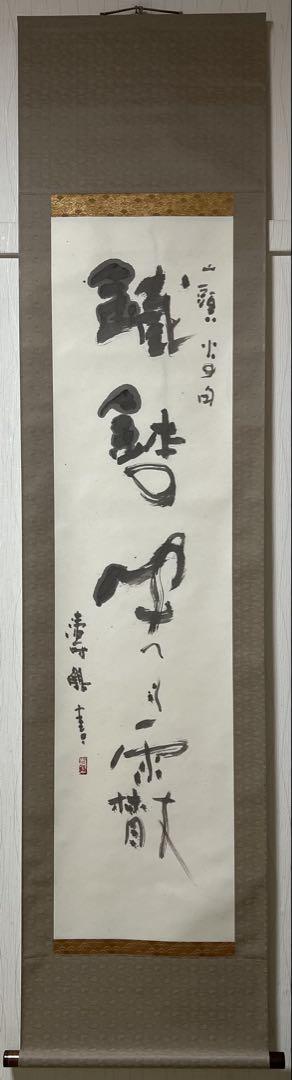 山頭火の句
鐵鉢の中へも霰
書